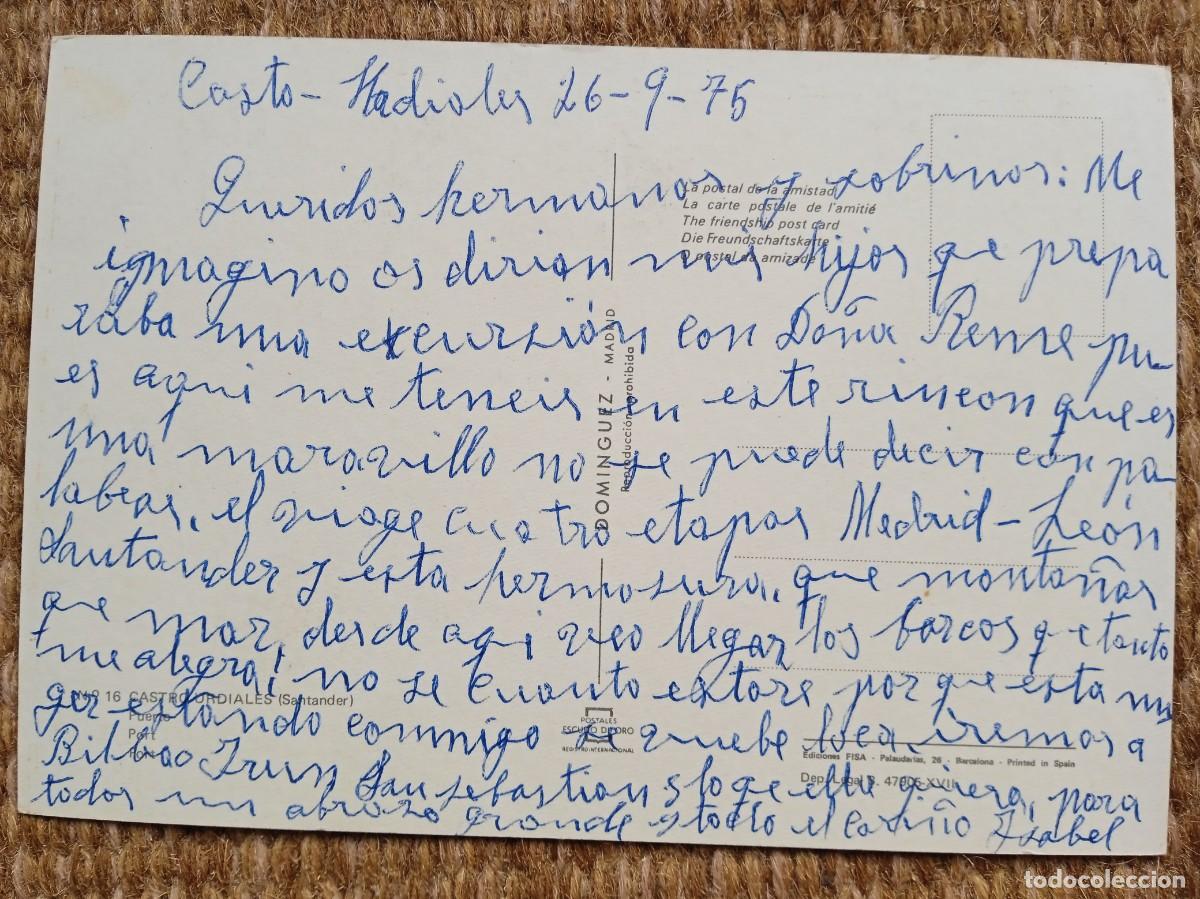 Casto-Hadioles 26-9-75
Queridos hermanos y sobrinos: Me
igmagino os dirian mis hijos que prepa
raba una excursión con Doña Reme pu-
es aqui me teneis en este rincon que es
una maravilla no se puede decir con pa-
labras, el viage cuatro etapas Madrid-León
Santander y esta hermosura, que montañas
que mar, desde aqui veo llegar los barcos que tanto
me alegra! no se cuanto estare por que esta mu
ger estando conmigo se vuelve loca, iremos a
Bilbao Irun San Sebastian y lo que ella quiera, para
todos un abrazo grande y todo el cariño Isabel
La postal de la amistad
La carte postale de l'amitié
The friendship post card
Die Freundschaftskarte
O postal da amizade
DOMINGUEZ - MADRID
Reproducción prohibida
Nº 16 CASTRO URDIALES (Santander)
Puerto
Port
Port
POSTALES
ESCUDO DE ORO
REGISTRO INTERNACIONAL
Ediciones FISA - Palaudarias, 26 - Barcelona - Printed in Spain
Dep. Legal B. 47905-XVII
todocoleccion